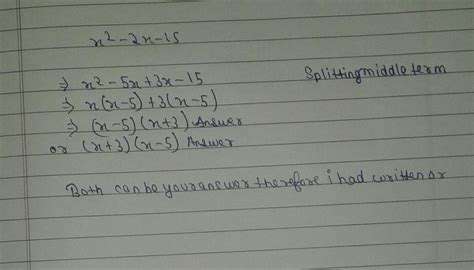 x²-2x-15
⇒ x²-5x+3x-15 Splitting middle term
⇒ x(x-5)+3(x-5)
⇒ (x-5)(x+3) Answer
or (x+3)(x-5) Answer
Both can be your answer therefore i had written or